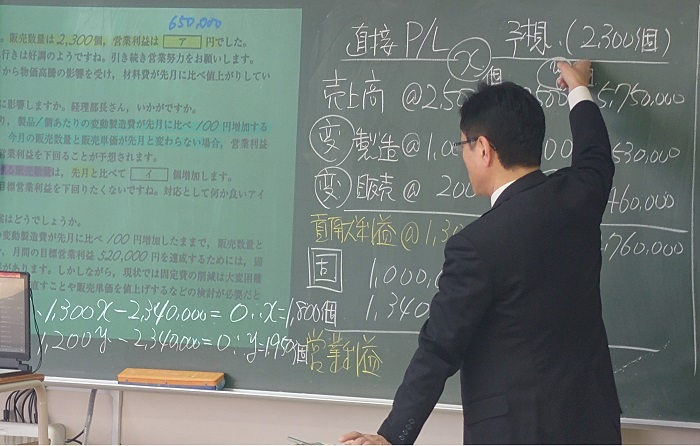 650,000
販売数量は2,300個，営業利益は ア 円でした。
行きは好調のようですね。引き続き営業努力をお願いします。
から物価高騰の影響を受け，材料費が先月に比べ値上がりしてい
に影響しますか。経理部長さん，いかがですか。
り，製品1個あたりの変動製造費が先月に比べ100円増加する
今月の販売数量と販売単価が先月と変わらない場合，営業利益
営業利益を下回ることが予想されます。
販売数量は，先月と比べて イ 個増加します。
目標営業利益を下回りたくないですね。対応として何か良いアイ
はどうでしょうか。
変動製造費が先月に比べ100円増加したままで，販売数量と
，月間の目標営業利益520,000円を達成するためには，固
があります。しかしながら，現状では固定費の削減は大変困難
直すことや販売単価を値上げするなどの検討が必要だと
1,300x－2,340,000＝0∴x＝1,800個
1,200y－2,340,000＝0∴y＝1,950個
直接P/L 予想（2,300個）
x個
売上高 @2,50 5,750,000
変 製造 @1,0 530,000
変 販売 @200 460,000
貢献利益 @1,3 2,760,000
固 1,000,0
1,340
営業利益